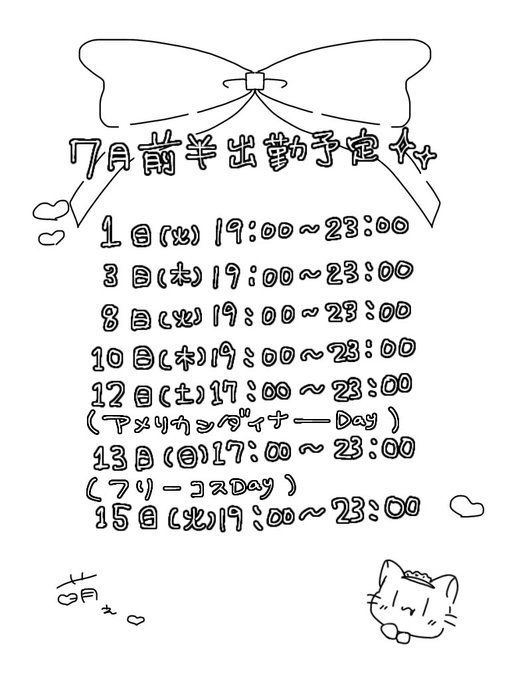 7月前半出勤予定
1日(火) 19:00～23:00
3日(木) 19:00～23:00
8日(火) 19:00～23:00
10日(木) 19:00～23:00
12日(土) 17:00～23:00
(アメリカンダイナーDay)
13日(日) 17:00～23:00
(フリーコスDay)
15日(火) 19:00～23:00